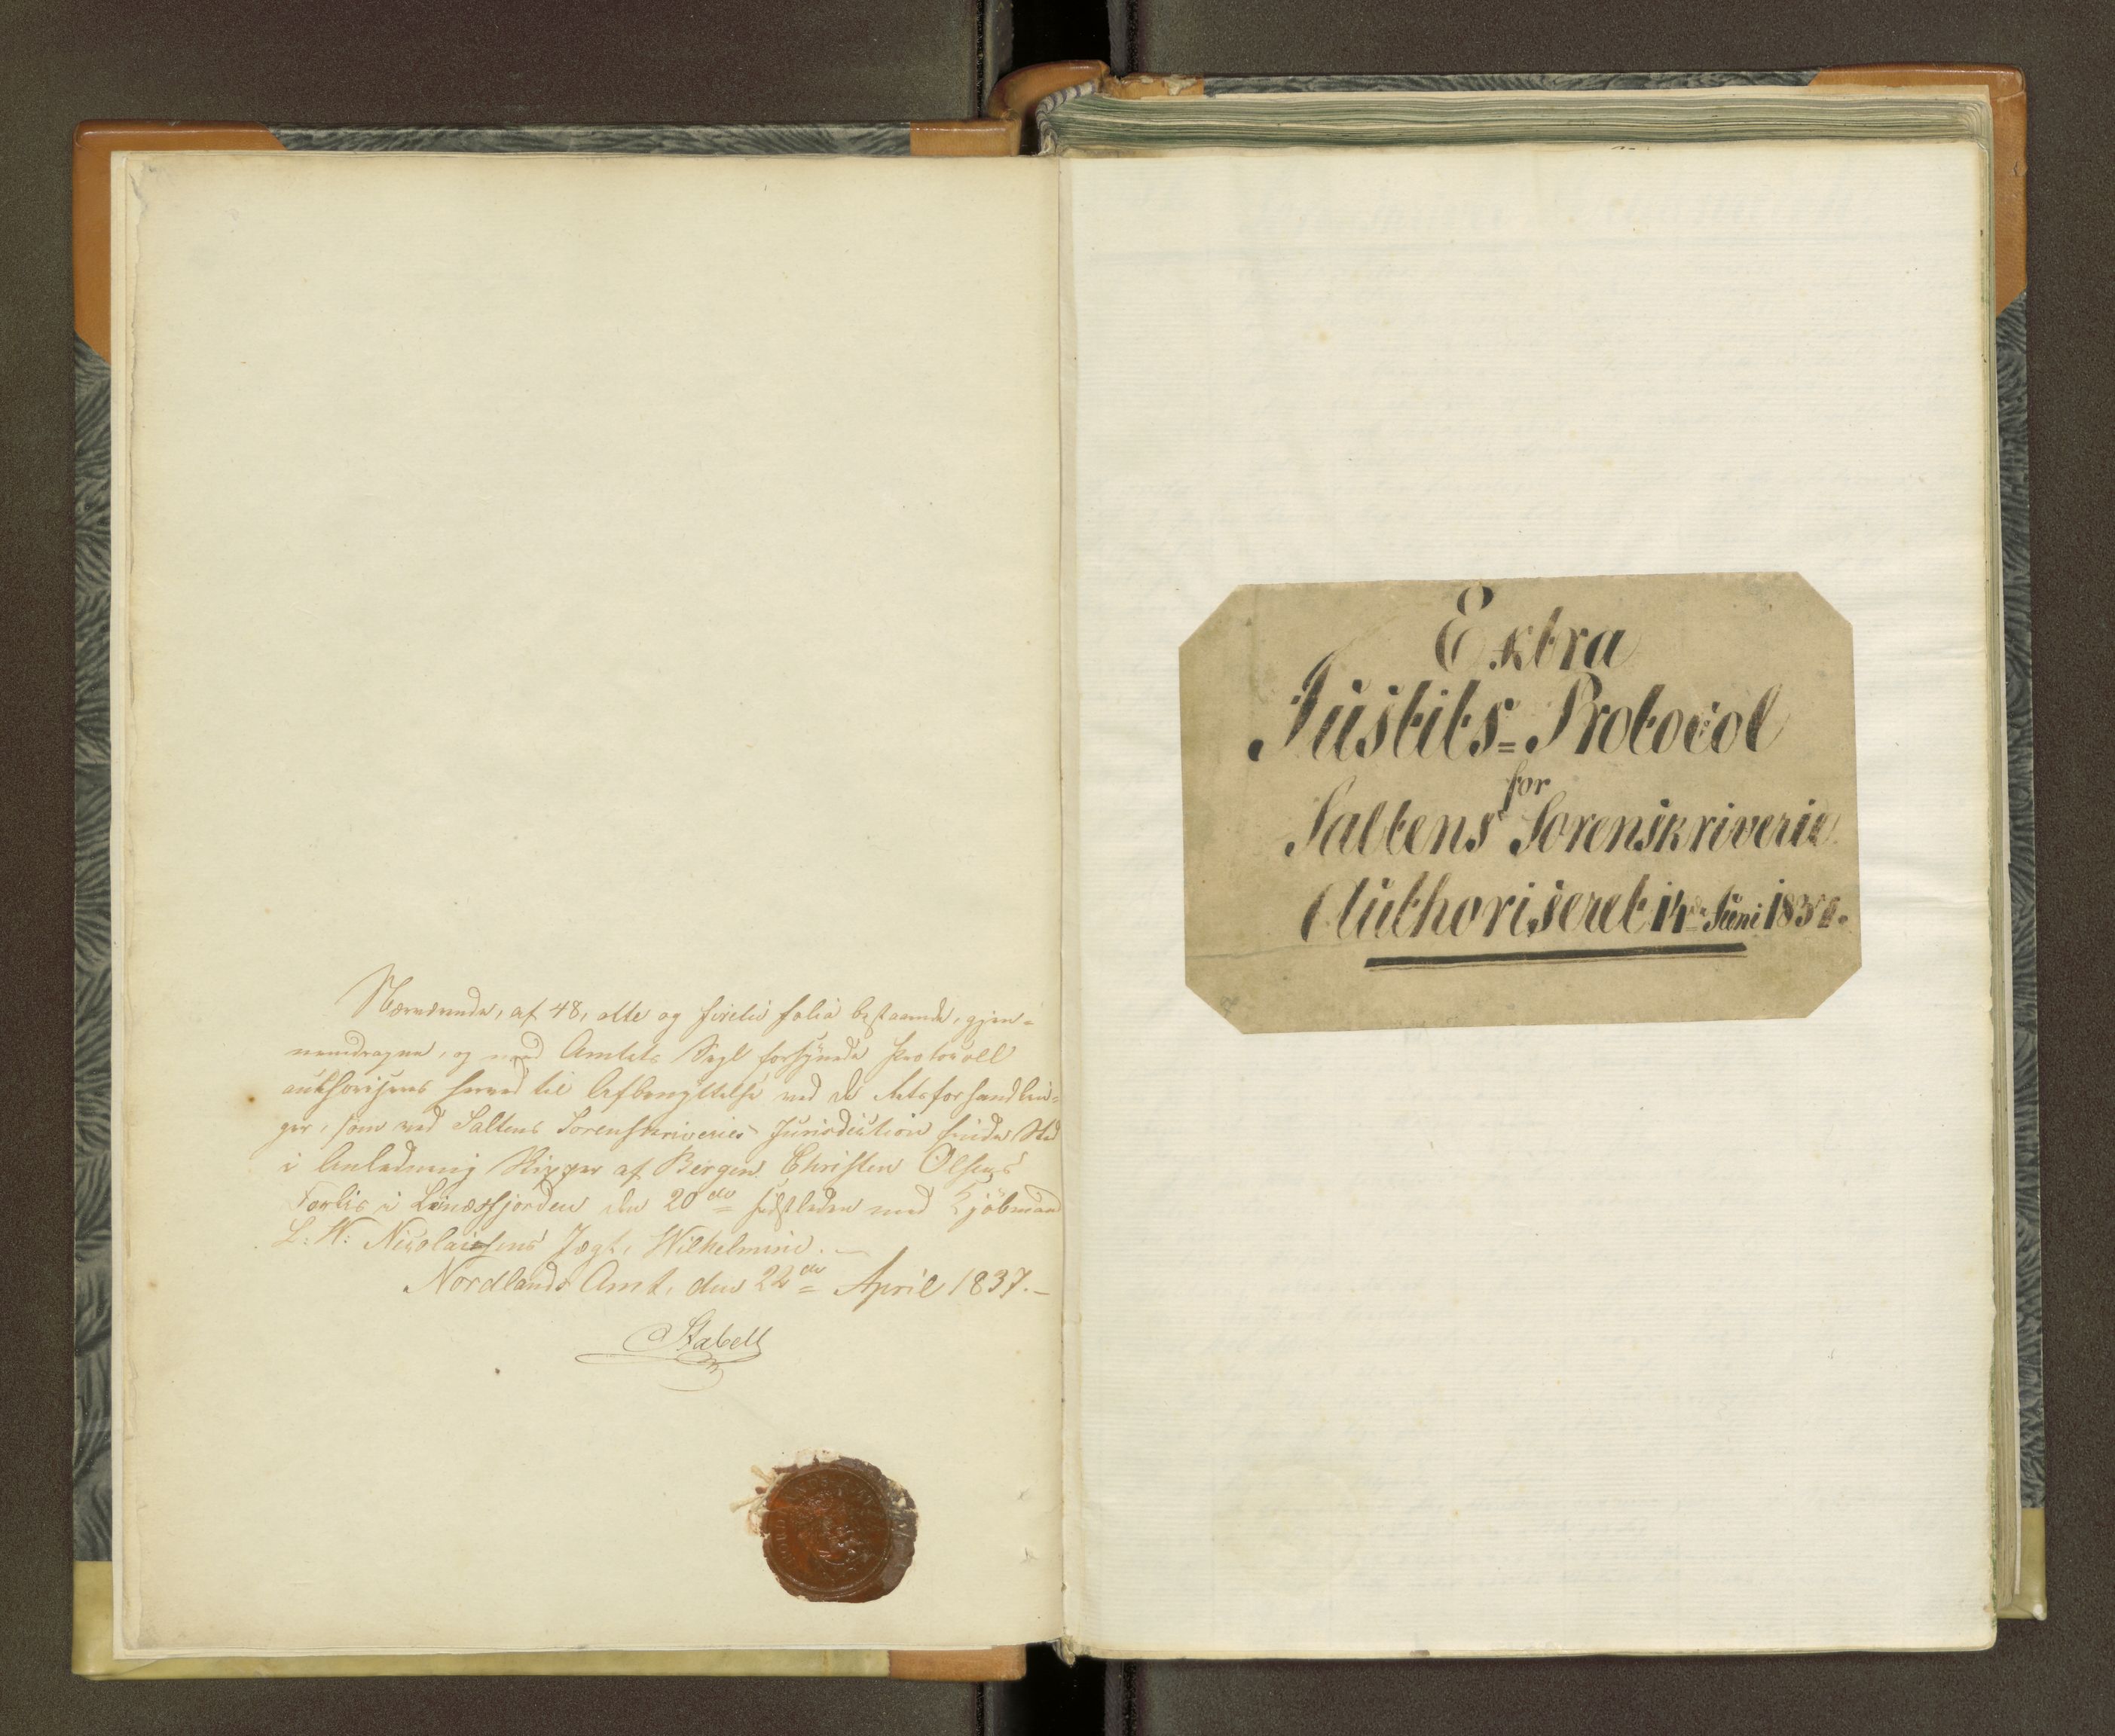 Nærværende, af 48, otte og firetive folia bestaaende, gjen-
nemdragne, og med Amtets Segl forsynede Protocoll
authoriseres herved til Afbenyttelse ved de Retsforhandlin-
ger, som ved Saltens Sorenskriveries Jurisdiction finder Sted
i Anledning Skipper af Bergen Christen Olsens
Forlis i den 20de sidstleden med Kjöbmand
L: W: Nicolaisens Jægt, Wilhelmine.-
Nordlands Amt, den 22de April 1837.-
Stabell
Extra
Justits=Protocol
for
Saltens Sorenskriverie
Authoriseret 14de Juni